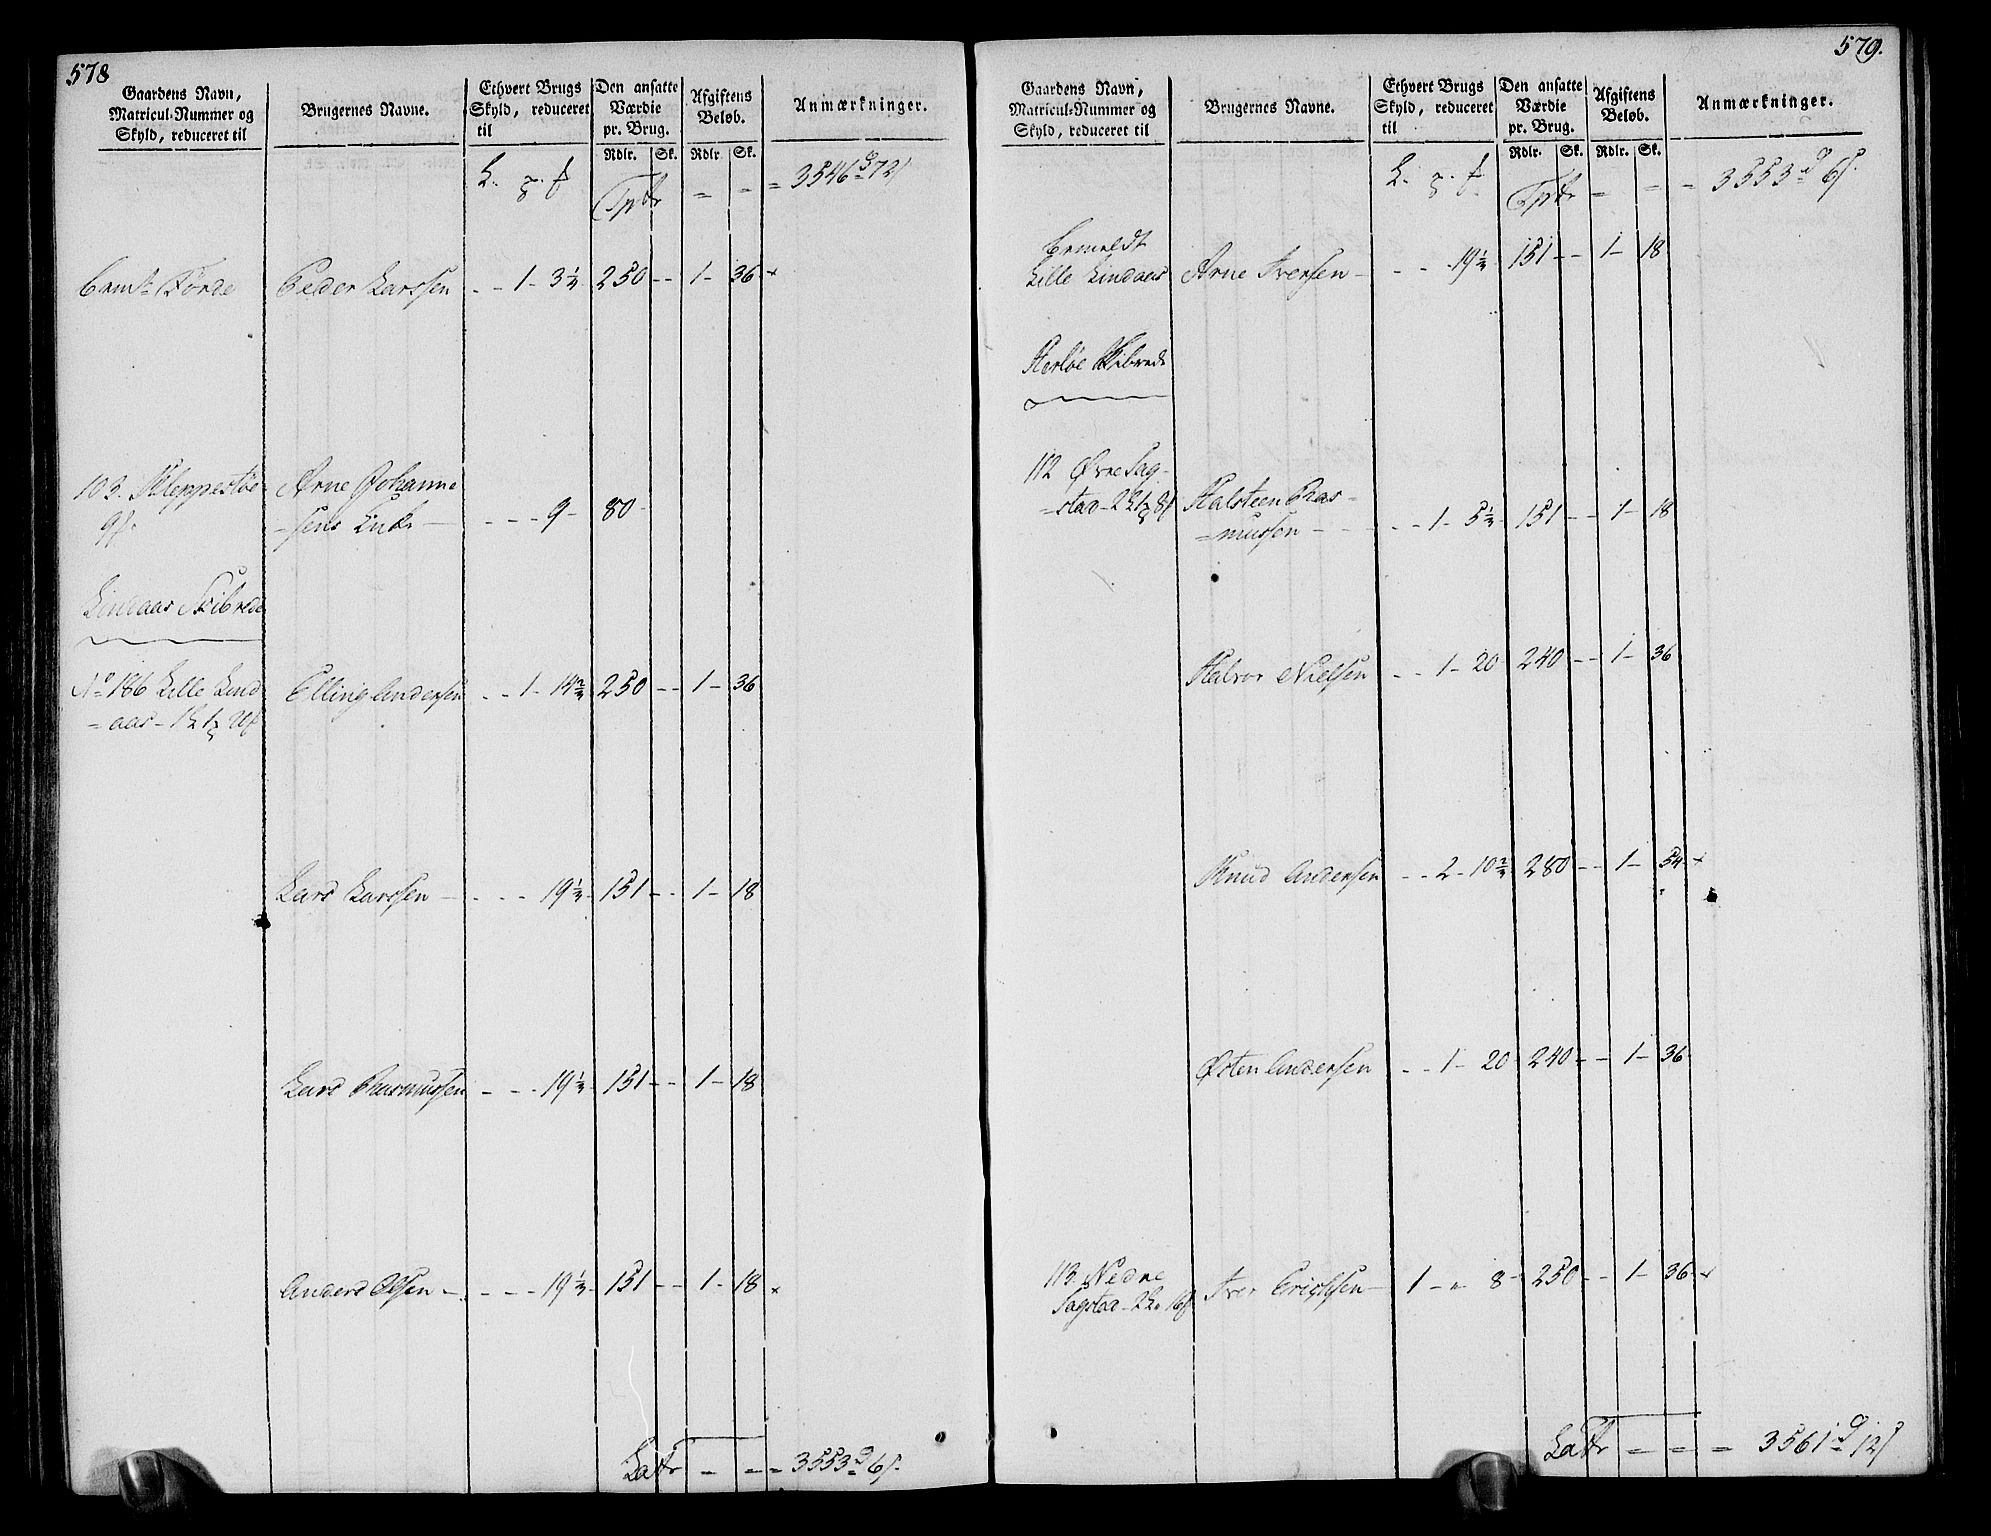 578
Gaardens Navn,
Matricul-Nummer og
Skyld, reduceret til
Brugernes Navne.
Ethvert Brugs
Skyld, reduceret
til
Den ansatte
Værdie
pr. Brug.
Rdlr. Sk.
Afgiftens
Beløb.
Rdlr Sk.
Anmærkninger.
L. f
Tptr = = = 3546 72
Bem: Førde Peder Larssen - - 1 - 3 1/2 250 - - 1 - 36
103. Kleppestøe Arne Johanne
9 =sens Enke - - - 9 - 80 -
Lindaas Skibrede
No 186 Lille Lind Elling Andersen - - 1 - 14 250 - - 1 - 36
=aas
Lars Larssen - - - 19 1/2 151 - - 1 - 18
Lars Rasmussen - - - 19 1/2 151 - - 1 - 18
Anders Olsen - - - - 19 1/2 151 - - 1 - 18
Latr = = = 3553 6
579.
Gaardens Navn,
Matricul-Nummer og
Skyld, reduceret til
Brugernes Navne.
Ethvert Brugs
Skyld, reduceret
til
Den ansatte
Værdie
pr. Brug.
Rdlr. Sk.
Afgiftens
Beløb.
Rdlr. Sk.
Anmærkninger.
L. f
Tptr = = = 3553 6
Bemeldt
Lille Lindaas Arne Iversen - - - 19 1/2 151 - - 1 - 18
Herløe Skibrede
112 Øvre Sag-
=stad Halsteen Ras=
=mussen - - - 1 - 5 1/2 151 - - 1 - 18
Halvor Nielsen - - 1 - 20 240 - - 1 - 36
Knud Andersen - - 2 - 10 280 - - 1 - 54
Østen Andersen - - 1 - 20 240 - - 1 - 36
113. Nedre
Sagstad Iver Erichsen - 1 - " 8 - 250 - - 1 - 36
Latr = = = 3561 12